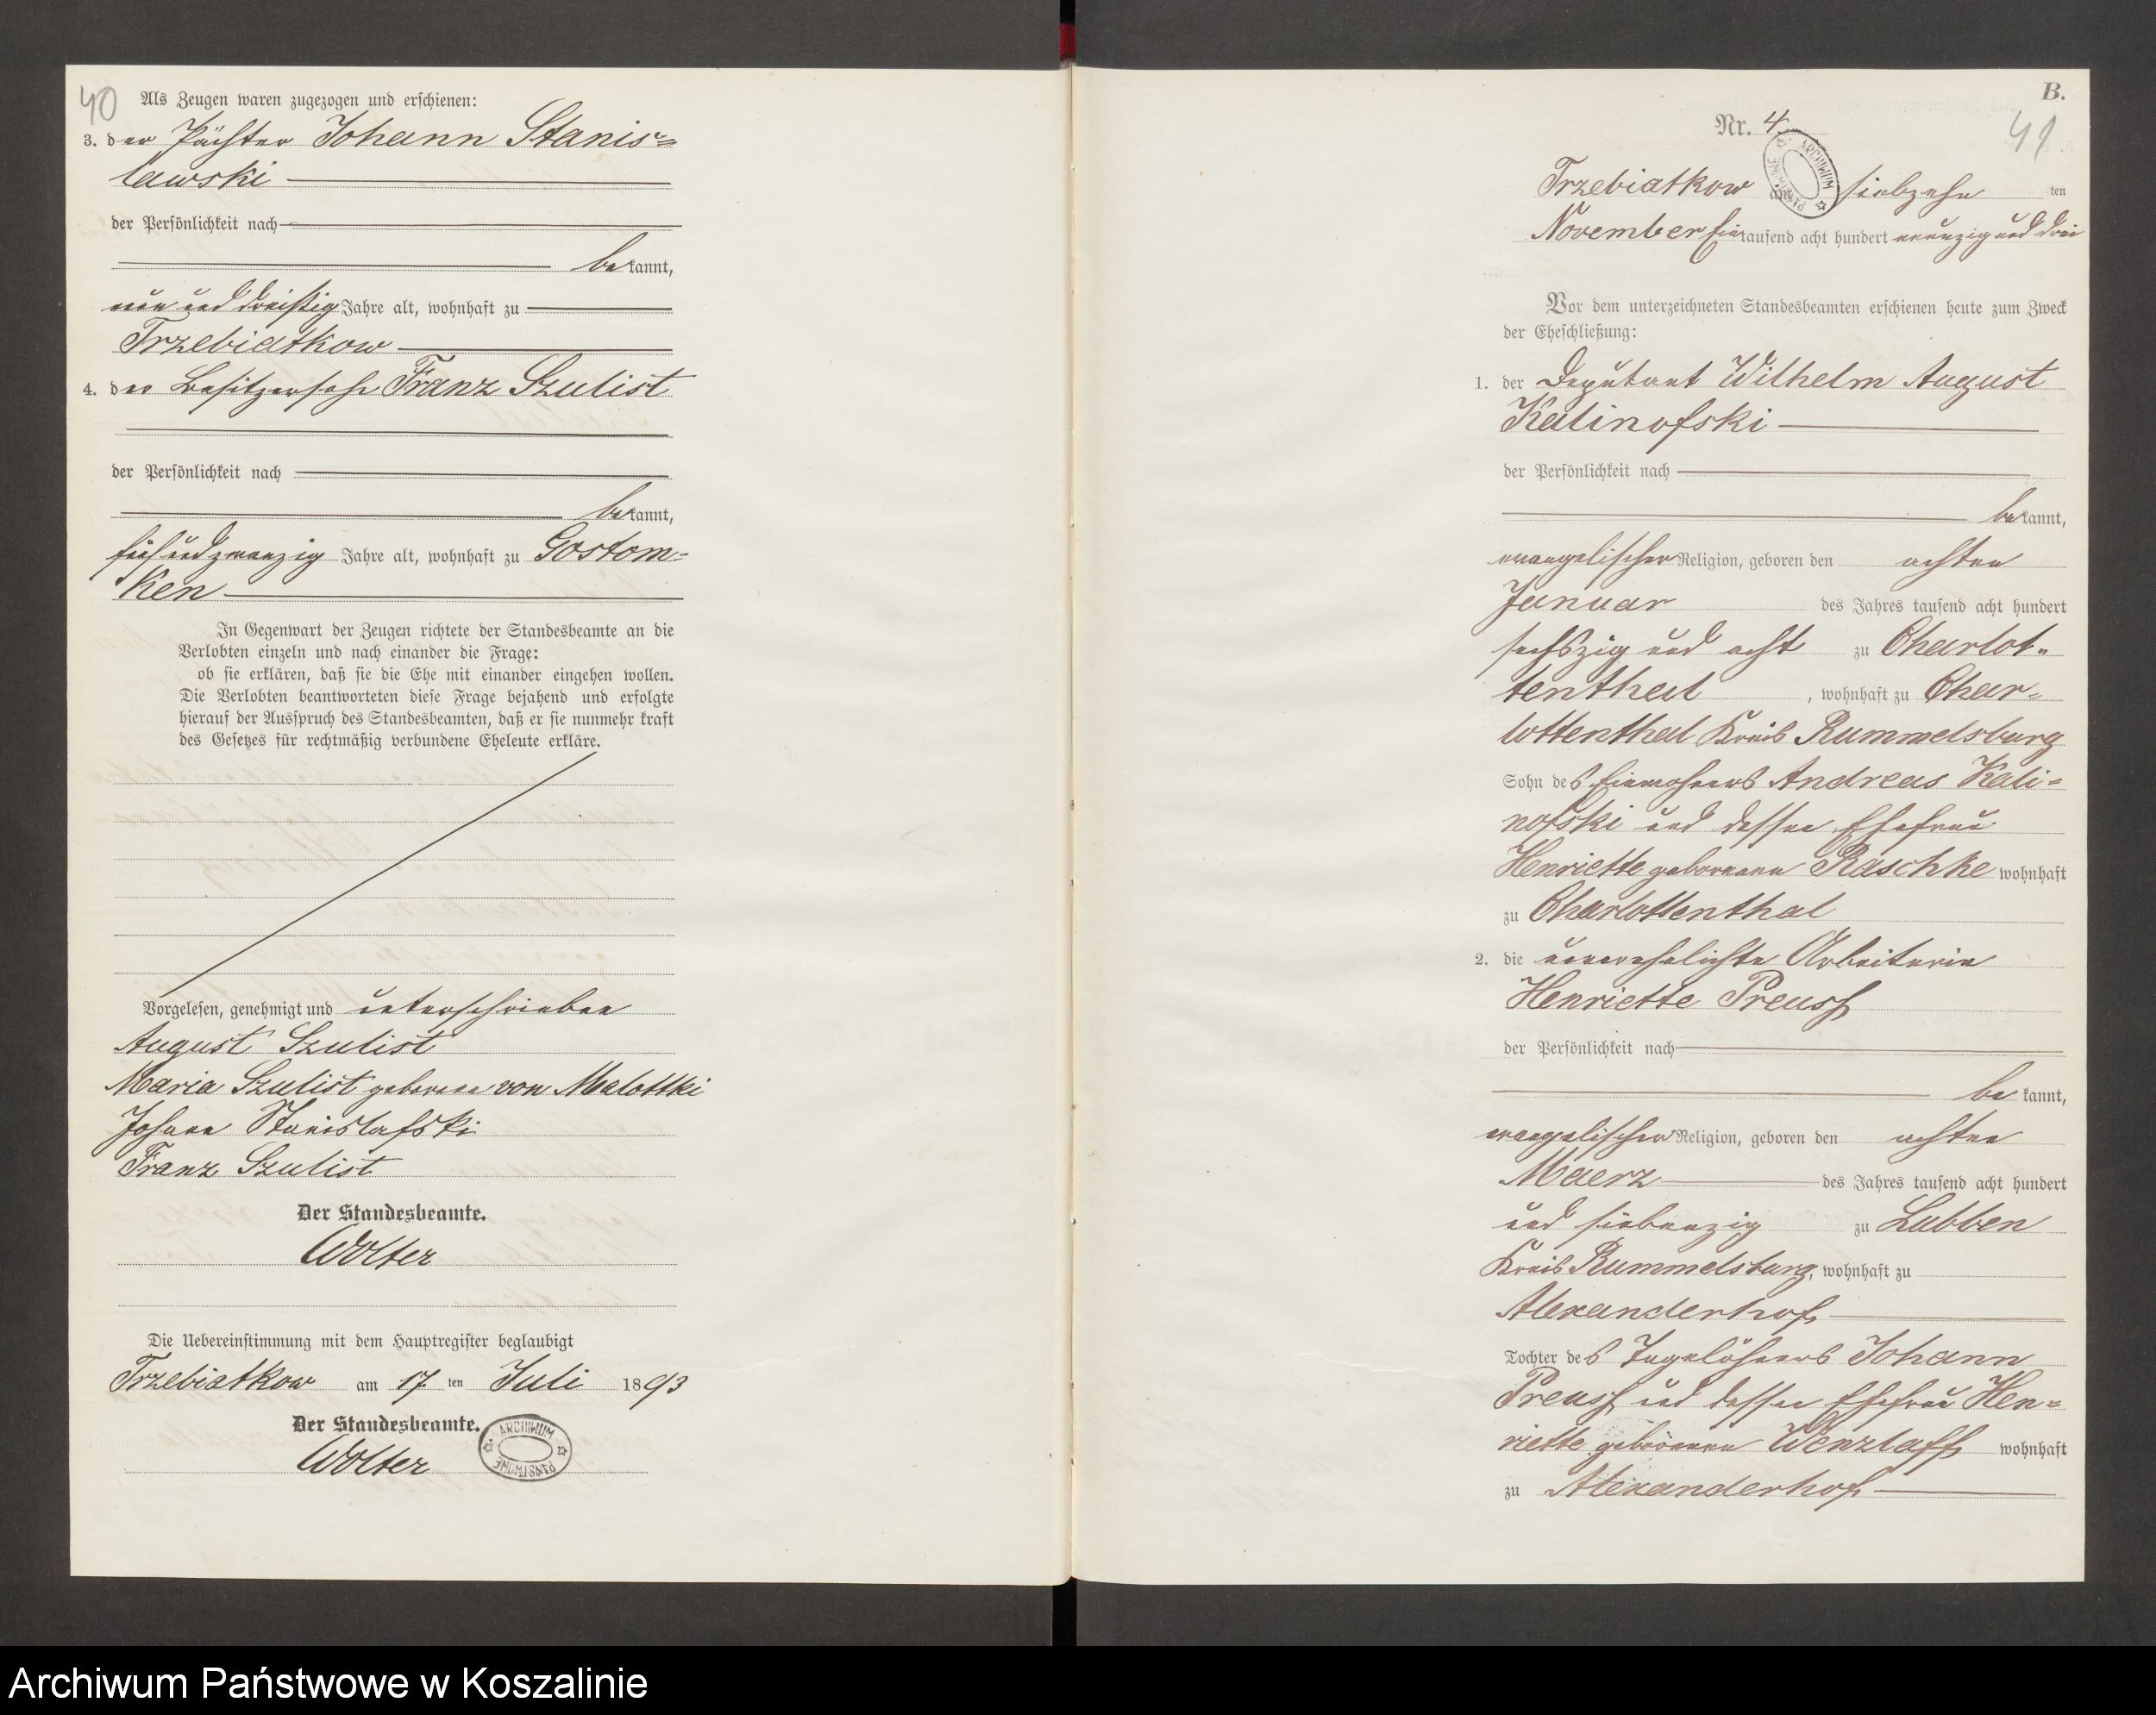 40
Als Zeugen waren zugezogen und erschienen:
3. der Pächter Johann Stanis=
lawski
der Persönlichkeit nach
bekannt,
neun und dreißig Jahre alt, wohnhaft zu
Trzebiatkow
4. der Besitzersohn Franz Szulist
der Persönlichkeit nach
bekannt,
fünf und zwanzig Jahre alt, wohnhaft zu Gostom=
ken
In Gegenwart der Zeugen richtete der Standesbeamte an die
Verlobten einzeln und nach einander die Frage:
ob sie erklären, daß sie die Ehe mit einander eingehen wollen.
Die Verlobten beantworteten diese Frage bejahend und erfolgte
hierauf der Ausspruch des Standesbeamten, daß er sie nunmehr kraft
des Gesetzes für rechtmäßig verbundene Eheleute erkläre.
Vorgelesen, genehmigt und unterschrieben
August Szulist
Maria Szulist geborene von Malottki
Johann Stanislafski
Franz Szulist
Der Standesbeamte.
Wolter
Die Uebereinstimmung mit dem Hauptregister beglaubigt
Trzebiatkow am 17 ten Juli 1893
Der Standesbeamte.
Wolter
ARCHIWUM PAŃSTWOWE
B.
41
Nr. 4.
ARCHIWUM PAŃSTWOWE
Trzebiatkow am siebzehn ten
November Eintausend acht hundert neunzig und drei
Vor dem unterzeichneten Standesbeamten erschienen heute zum Zweck
der Eheschließung:
1. der Deputant Wilhelm August
Kalinofski
der Persönlichkeit nach
bekannt,
evangelischer Religion, geboren den achten
Januar des Jahres tausend acht hundert
sechszig und acht zu Charlot=
tenthal, wohnhaft zu Char=
lottenthal Kreis Rummelsburg
Sohn des Einwohners Andreas Kali=
nofski und dessen Ehefrau
Henriette geborenen Raschke wohnhaft
zu Charlottenthal
2. die unverehelichte Arbeiterin
Henriette Preuss
der Persönlichkeit nach
bekannt,
evangelischer Religion, geboren den achten
Maerz des Jahres tausend acht hundert
und siebenzig zu Lubben
Kreis Rummelsburg, wohnhaft zu
Alexanderhof
Tochter des Tagelöhners Johann
Preuss und dessen Ehefrau Hen=
riette geborenen Wenzlaff wohnhaft
zu Alexanderhof
Archiwum Państwowe w Koszalinie